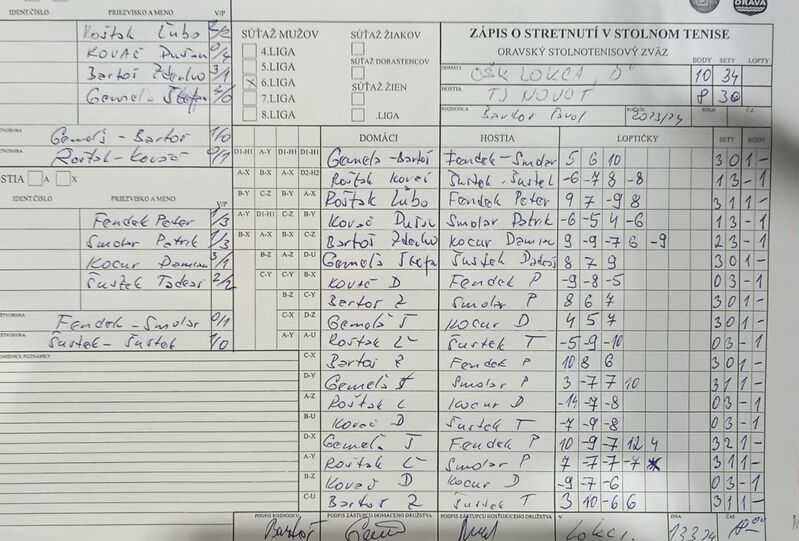 IDENT.ČÍSLO PRIEZVISKO A MENO V/P
Roštak Ľubo 2/2
Kovač Dušan 0/4
Bartoš Zdenko 3/1
Gemeľa Štefan 4/0
Gemeľa - Bartoš 1/0
Roštak - Kovač 0/1
HOSTIA A X
IDENT.ČÍSLO PRIEZVISKO A MENO V/P
Fendek Peter 1/3
Smolar Patrik 1/3
Kocur Damian 3/1
Šustek Tadeáš 2/2
Fendek - Smolar 0/1
Šustek - Šustek 1/0
SÚŤAŽ MUŽOV
4.LIGA
5.LIGA
X 6.LIGA
7.LIGA
8.LIGA
SÚŤAŽ ŽIAKOV
SÚŤAŽ DORASTENCOV
SÚŤAŽ ŽIEN
.LIGA
ORAVA
ZÁPIS O STRETNUTÍ V STOLNOM TENISE
ORAVSKÝ STOLNOTENISOVÝ ZVÄZ
DOMÁCI OŠK LOKCA "D" BODY 10 SETY 34 LOPTY
HOSTIA TJ NOVOŤ 8 30
ROZHODCA Bartoš Pavol ROČNÍK 2023/24 KOLO Č.Z.
DOMÁCI HOSTIA LOPTIČKY SETY BODY
D1-H1 A-Y D1-H1 D1-H1 Gemeľa - Bartoš Fendek - Smolar 5 6 10 3 0 1 -
A-X B-X A-X D2-H2 Roštak Kovač Šustek - Šustek -6 -7 8 -8 1 3 - 1
B-Y C-Z B-Y A-X Roštak Ľubo Fendek Peter 9 7 -9 8 3 1 1 -
A-Y D1-H1 C-Z B-Y Kovač Dušan Smolar Patrik -6 -5 4 -6 1 3 - 1
B-X A-X A-X C-Z Bartoš Zdenko Kocur Damian 9 -9 -7 6 -9 2 3 - 1
B-Y A-Z D-U Gemeľa Štefan Šustek Tadeáš 8 7 9 3 0 1 -
C-Y C-Y B-X Kovač D Fendek P -9 -8 -5 0 3 - 1
B-Z C-Y Bartoš Z Smolar P 8 6 7 3 0 1 -
C-X D-Z Gemeľa Š Kocur D 4 5 7 3 0 1 -
A-Y A-U Roštak Ľ Šustek T -5 -9 -10 0 3 - 1
C-X Bartoš Z Fendek P 10 8 6 3 0 1 -
D-Y Gemeľa Š Smolar P 3 -7 7 10 3 1 1 -
A-Z Roštak Ľ Kocur D -14 -7 -8 0 3 - 1
B-U Kovač D Šustek T -7 -9 -8 0 3 - 1
D-X Gemeľa Š Fendek P 10 -9 -7 12 4 3 2 1 -
A-Y Roštak Ľ Smolar P 7 -7 -7 -7 3 1 1 -
B-Z Kovač D Kocur D -9 -7 -6 0 3 - 1
C-U Bartoš Z Šustek T 3 10 -6 6 3 1 1 -
PODPIS ROZHODCU PODPIS ZÁSTUPCU DOMÁCEHO DRUŽSTVA PODPIS ZÁSTUPCU HOSŤUJÚCEHO DRUŽSTVA V DŇA ČAS
Bartoš Lokci 1.3.24